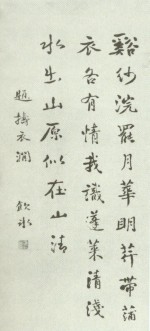 谿紗浣罷月華明荇帶蒲
衣各有情我識蓬萊清淺
水出山原似在山清
題擣衣澗
飲冰